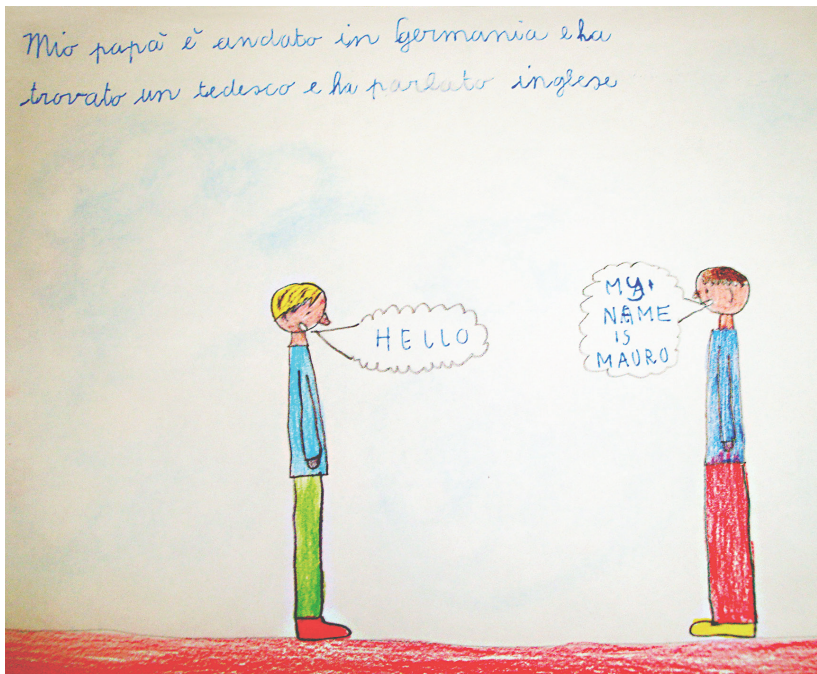 Mio papà è andato in Germania e ha
trovato un tedesco e ha parlato inglese
HELLO
MY
NAME
IS
MAURO